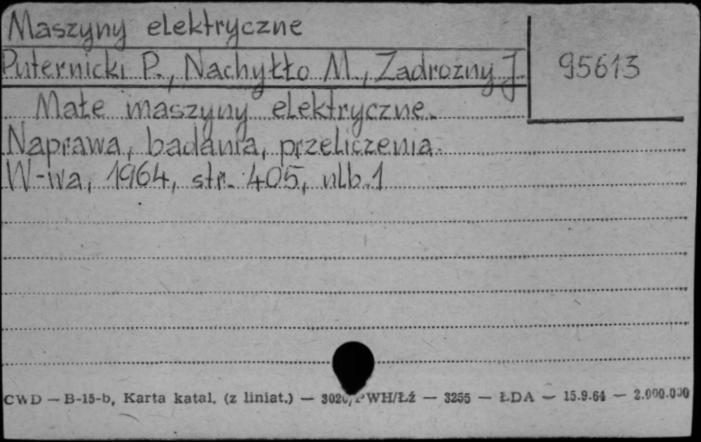 Maszyny elektryczne
Puternicki P., Nachyłło M., Zadrożny J.
95613
Małe maszyny elektryczne.
Naprawa, badania, przeliczenia.
W-wa, 1964, str. 405, nlb. 1
CWD — B-15-b, Karta katal. (z liniat.) — 3020/PWH/Łź — 3255 — ŁDA — 15.9.64 — 2.000.000